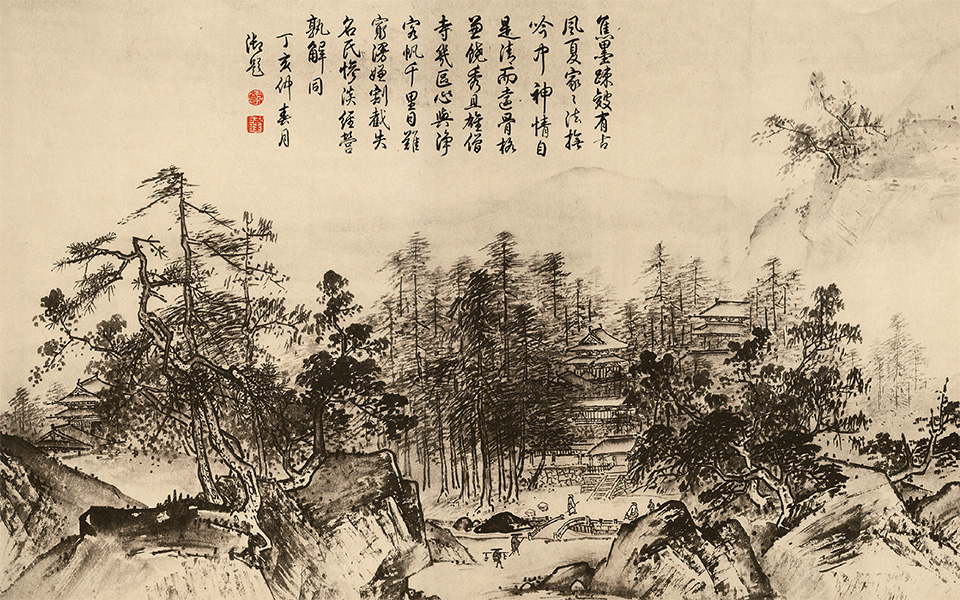 焦墨踈皴有古
風夏家〻法撫
吟中神情自
是清而遠骨格
並饒秀且雄僧
寺幾區心與淨
客帆千里目難
窮漫嫌割截失
名氏慘淡經營
孰解同
丁亥仲春月
御題